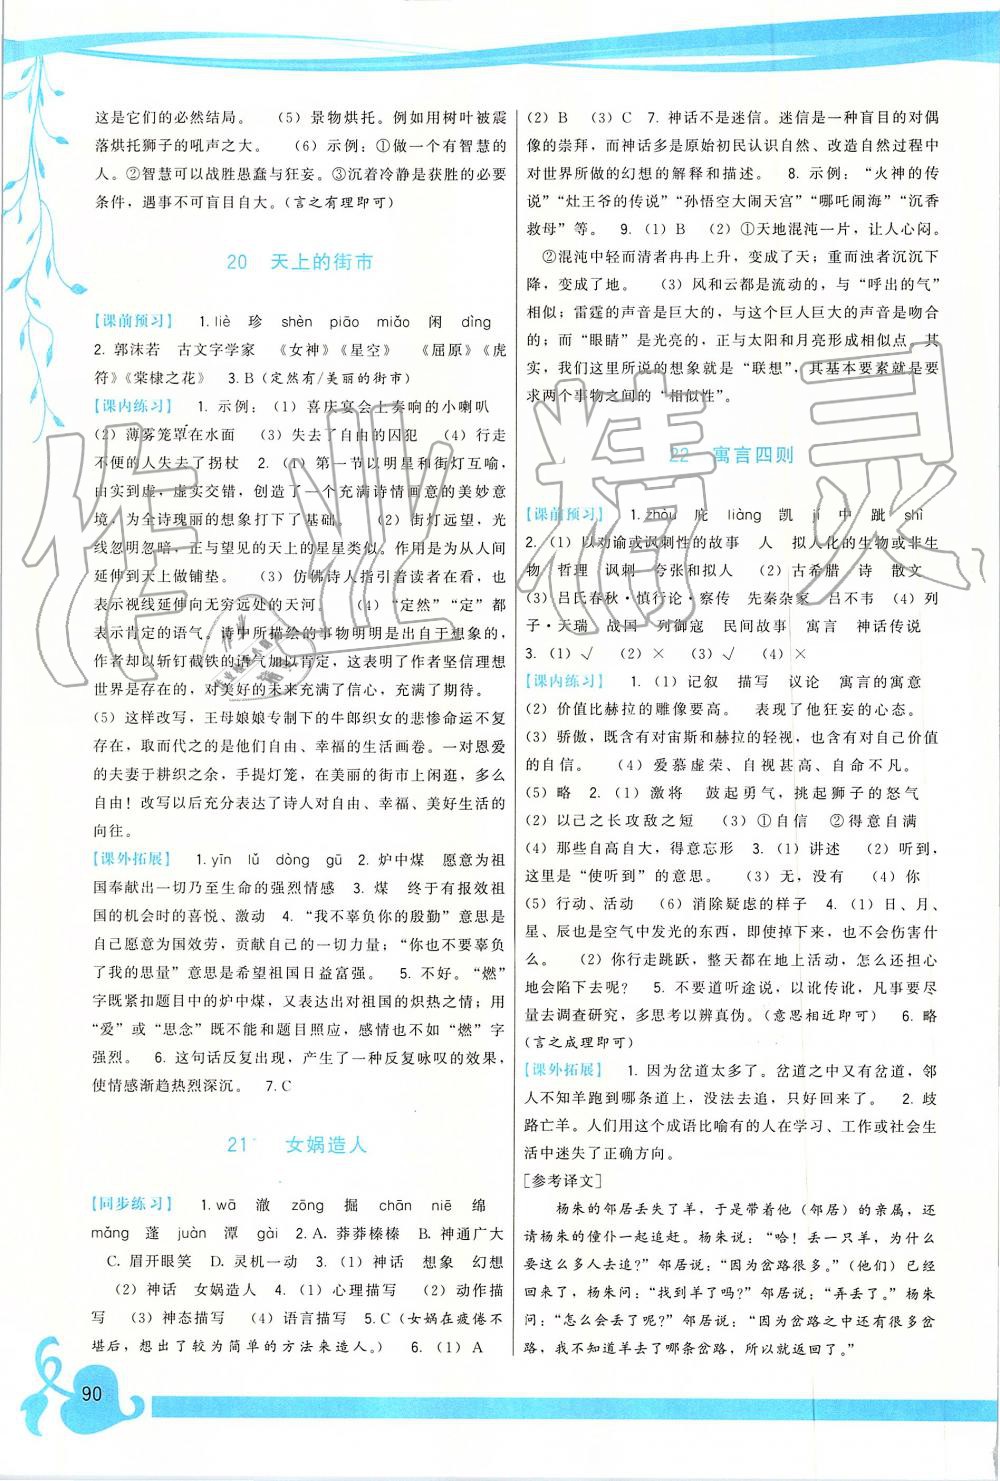 这是它们的必然结局。 (5) 景物烘托。例如用树叶被震
落烘托狮子的吼声之大。 (6) 示例：①做一个有智慧的
人。②智慧可以战胜愚蠢与狂妄。③沉着冷静是获胜的必要
条件，遇事不可盲目自大。(言之有理即可)
20 天上的街市
【课前预习】 1. liè 珍 shèn piāo miǎo 闲 dìng
2. 郭沫若 古文字学家 《女神》《星空》 《屈原》《虎
符》《棠棣之花》 3. B (定然有/美丽的街市)
【课内练习】 1. 示例： (1) 喜庆宴会上奏响的小喇叭
(2) 薄雾笼罩在水面 (3) 失去了自由的囚犯 (4) 行走
不便的人失去了拐杖 2. (1) 第一节以明星和街灯互喻，
由实到虚，虚实交错，创造了一个充满诗情画意的美妙意
境，为全诗瑰丽的想象打下了基础。 (2) 街灯远望，光
线忽明忽暗，正与望见的天上的星星类似。作用是为从人间
延伸到天上做铺垫。 (3) 仿佛诗人指引着读者在看，也
表示视线延伸向无穷远处的天河。 (4) “定然”“定”都
表示肯定的语气。诗中所描绘的事物明明是出自于想象的，
作者却以斩钉截铁的语气加以肯定，这表明了作者坚信理想
世界是存在的，对美好的未来充满了信心，充满了期待。
(5) 这样改写，王母娘娘专制下的牛郎织女的悲惨命运不复
存在，取而代之的是他们自由、幸福的生活画卷。一对恩爱
的夫妻于耕织之余，手提灯笼，在美丽的街市上闲逛，多么
自由！改写以后充分表达了诗人对自由、幸福、美好生活的
向往。
【课外拓展】 1. yīn lǔ dòng gū 2. 炉中煤 愿意为祖
国奉献出一切乃至生命的强烈情感 3. 煤 终于有报效祖
国的机会时的喜悦、激动 4. “我不辜负你的殷勤”意思是
自己愿意为国效劳，贡献自己的一切力量；“你也不要辜负
了我的思量”意思是希望祖国日益富强。 5. 不好。“燃”
字既紧扣题目中的炉中煤，又表达了对祖国的炽热之情；用
“爱”或“思念”既不能和题目照应，感情也不如“燃”字
强烈。 6. 这句话反复出现，产生了一种反复咏叹的效果，
使情感渐趋热烈深沉。 7. C
21 女娲造人
【同步练习】 1. wā 澈 zōng 掘 chān niē 绵
mǎng 蓬 juàn 潭 gài 2. A. 莽莽榛榛 B. 神通广大
C. 眉开眼笑 D. 灵机一动 3. (1) 神话 想象 幻想
(2) 神话 女娲造人 4. (1) 心理描写 (2) 动作描
写 (3) 神态描写 (4) 语言描写 5. C (女娲在疲倦不
堪后，想出了较为简单的方法来造人。) 6. (1) A
(2) B (3) C 7. 神话不是迷信。迷信是一种盲目的对偶
像的崇拜，而神话多是原始初民认识自然、改造自然过程中
对世界所做的幻想的解释和描述。 8. 示例：“火神的传
说”“灶王爷的传说”“孙悟空大闹天宫”“哪吒闹海”“沉香
救母”等。 9. (1) B (2) ①天地混沌一片，让人心闷。
②混沌中轻而清者冉冉上升，变成了天；重而浊者沉沉下
降，变成了地。 (3) 风和云都是流动的，与“呼出的气”
相似；雷霆的声音是巨大的，与这个巨人巨大的声音是吻合
的；而“眼睛”是光亮的，正与太阳和月亮形成相似点。因
此，我们这里所说的想象就是“联想”，其基本要素就是要
求两个事物之间的“相似性”。
22 寓言四则
【课前预习】 1. zhòu 庇 liàng 凯 jí 中 跐 shì
2. (1) 以劝谕或讽刺性的故事 人 拟人化的生物或非生
物 哲理 讽刺 夸张和拟人 (2) 古希腊 诗 散文
(3) 吕氏春秋·慎行论·察传 先秦杂家 吕不韦 (4) 列
子·天瑞 战国 列御寇 民间故事 寓言 神话传说
3. (1) √ (2) × (3) √ (4) ×
【课内练习】 1. (1) 记叙 描写 议论 寓言的寓意
(2) 价值比赫拉的雕像要高。 表现了他狂妄的心态。
(3) 骄傲，既含有对宙斯和赫拉的轻视，也含有对自己价值
的自信。 (4) 爱慕虚荣、自视甚高、自命不凡。
(5) 略 2. (1) 激将 鼓起勇气，挑起狮子的怒气
(2) 以己之长攻敌之短 (3) ①自信 ②得意自满
(4) 那些自高自大，得意忘形 3. (1) 讲述 (2) 听到，
这里是“使听到”的意思。 (3) 无，没有 (4) 你
(5) 行动、活动 (6) 消除疑虑的样子 4. (1) 日、月、
星、辰也是空气中发光的东西，即使掉下来，也不会伤害什
么。 (2) 你行走跳跃，整天都在地上活动，怎么还担心
地会陷下去呢？ 5. 不要道听途说，以讹传讹，凡事要尽
量去调查研究，多思考以辨真伪。(意思相近即可) 6. 略
(言之成理即可)
【课外拓展】 1. 因为岔道太多了。岔道之中又有岔道，邻
人不知羊跑到哪条道上，没法去追，只好回来了。 2. 歧
路亡羊。人们用这个成语比喻有的人在学习、工作或社会生
活中迷失了正确方向。
[参考译文]
杨朱的邻居丢失了羊，于是带着他（邻居）的亲属，还
请杨朱的僮仆一起追赶。杨朱说：“哈！丢一只羊，为什么
要这么多人去追？”邻居说：“因为岔路很多。”(他们) 已经
回来了，杨朱问：“找到羊了吗？”邻居说：“弄丢了。”杨朱
问：“怎么会丢了呢？”邻居说：“因为岔路之中还有很多岔
路，我不知道羊去了哪条岔路，所以就返回来了。”
90
作业精灵